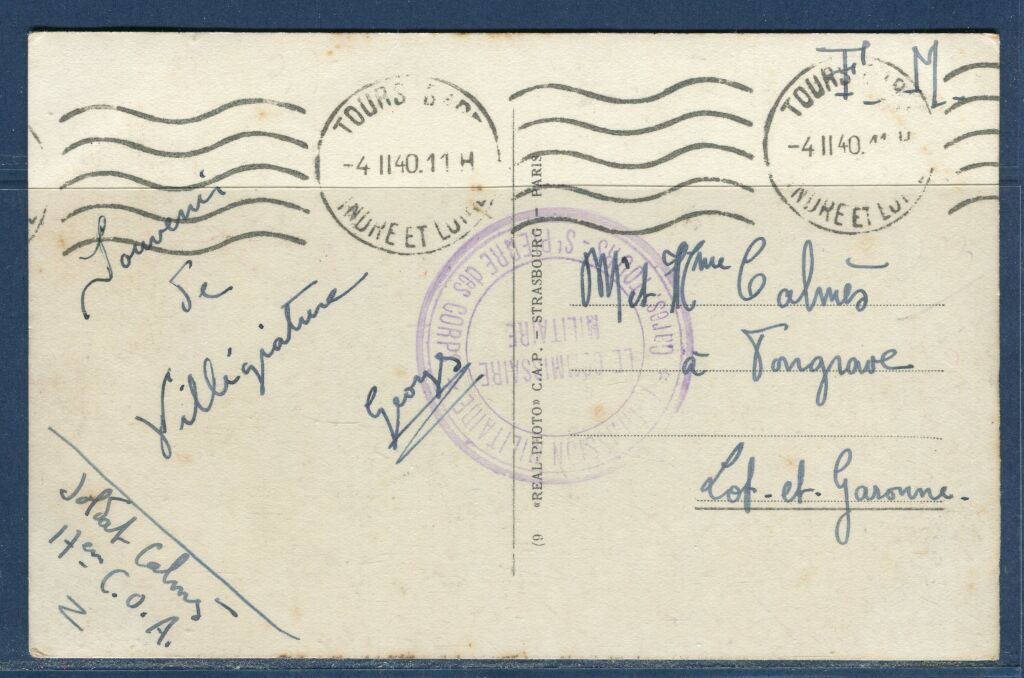 F. M.
TOURS GARE
-4 II 40. 11 H
INDRE ET LOIRE
TOURS GARE
-4 II 40. 11 H
INDRE ET LOIRE
Souvenir
de
Villégiature
Georges
Soldat Calmès
17em C.O.A.
«REAL-PHOTO» C.A.P. - STRASBOURG - PARIS
Gares Tours - St PIERRE des CORPS
LE COMMISSAIRE
MILITAIRE
MILITAIRE
Mr et Mme Calmès
à Fongrave
Lot-et-Garonne.